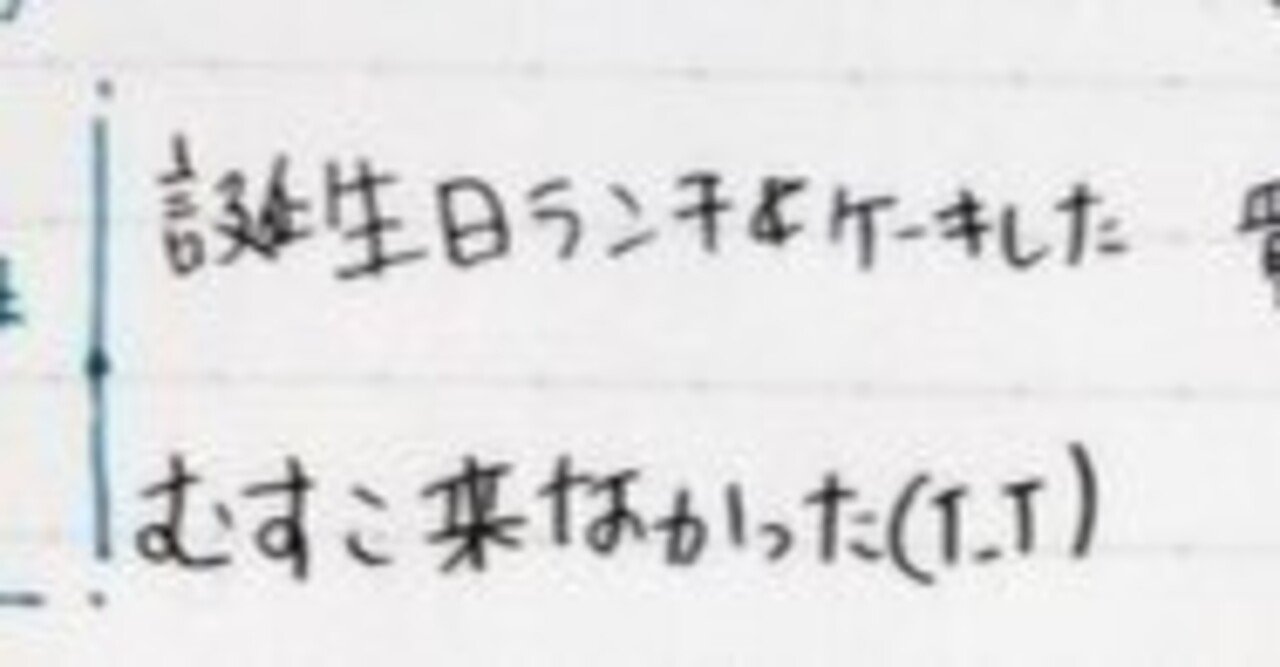 誕生日ランチ&ケーキした
むすこ来なかった(T_T)